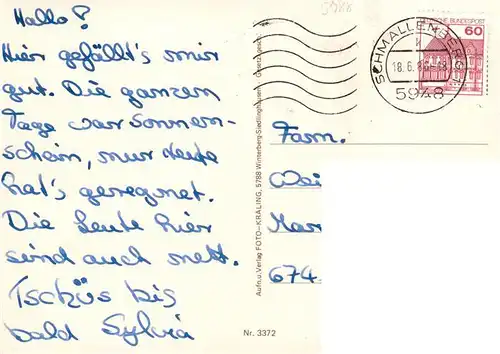 Hallo!
Hier gefällt's mir
gut. Die ganzen
Tage war Sonnen-
schein, nur heute
hat's geregnet.
Die Leute hier
sind auch nett.
Tschüs bis
bald Sylvia
Aufn. u. Verlag FOTO-KRALING, 5788 Winterberg-Siedlinghausen
Gesetzl. gesch.
Nr. 3372
5948
SCHMALLENBERG 1
18.6.8
5948
DEUTSCHE BUNDESPOST
60
Fam.
Wei
Mar
674